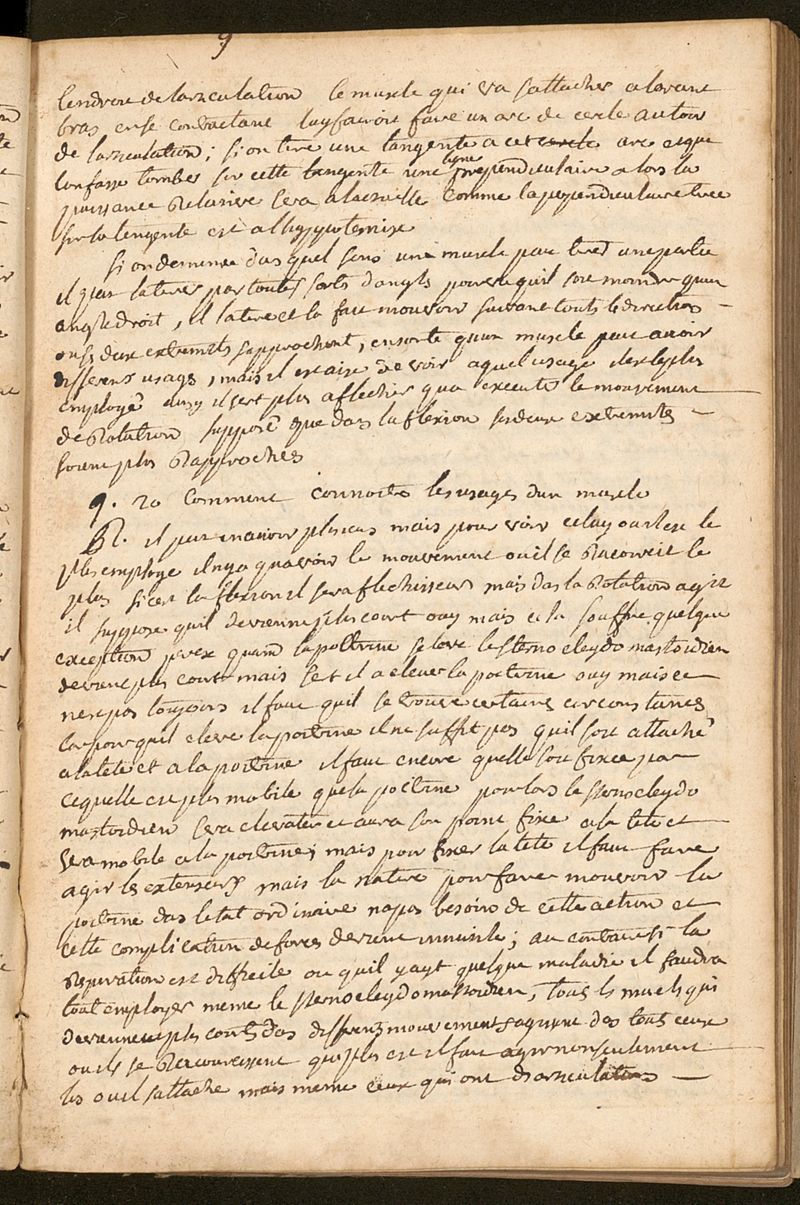 9
lendroit de larticulation le muscle qui va sattacher a lavant
bras en se contractant luy fairoit faire un arc de cercle autour
de larticulation; si on tire une tangente a cet cercle arc et que
lon fasse tomber sur cette tangente une ligne perpendiculaire alors la
puissance relative sera a la reelle comme la perpendiculaire tiree
sur la tengente est a lhypotemise
si on demende das quel sens une muscle peut tirer une partie
il peut la tirer par toutes sorts dangls pourvu quil soit moindre quun
angle droit, il la tire et la fait mouvoir suivant touts le directions
ou ses deux extremits sapprochent, ensorte quun muscle peut avoir
differens usags, mais il est aise de voir a quel usage il est le plus
employé ainsy il sert plus a flechir qua executer le mouvement
de Rotation supposé que das la flexion ses deux extremites
soient plus Rapprochés
q. 20 Comment connoitre les usages dun muscle
R. il peut en avoir plusieurs mais pour voir celuy ou il est le
plus employe il ny a qua voir le mouvement ou il se Racourcit le
plus si cest la flexion il sera flechisseur mais das la Rotation agit
il suppose quil devienne plus court ouy mais cela souffre quelque
exception p. ex quand la poitrine se leve le sterno cleydo mastoidien
devient plus court mais sert il a elever la poitrine ouy mais ce
nest pas toujours il faut quil se trouve certaines circonstances
car pour quil eleve la poitrine il ne suffit pas quil soit attaché
a la tete et a la poitrine il faut encore quelle soit fixee par
ce quelle est plus mobile que la poitrine pour lors le sterno cleydo
mastoidien sera elevateur et aura son point fixe a la tete et
sera mobile a la poitrine; mais pour fixer la tete il faut faire
agir les extenseurs mais la nature pour faire mouvoir la
poitrine das letat ordinaire na pas besoin de cette action et
cette complication de forces devient innutile; au contraire si la
Respiration est difficile ou quil y ayt quelque maladie il faudra
tout employer meme le sterno cleydo mastoidien, tous ls muscls qui
deviennent plus courts das differens mouvements nagissent das tout ceux
ou ils se Racourcissent qui plus est il fait agir non seulement
ls ou il sattache mais meme ceux qui ont darticulation